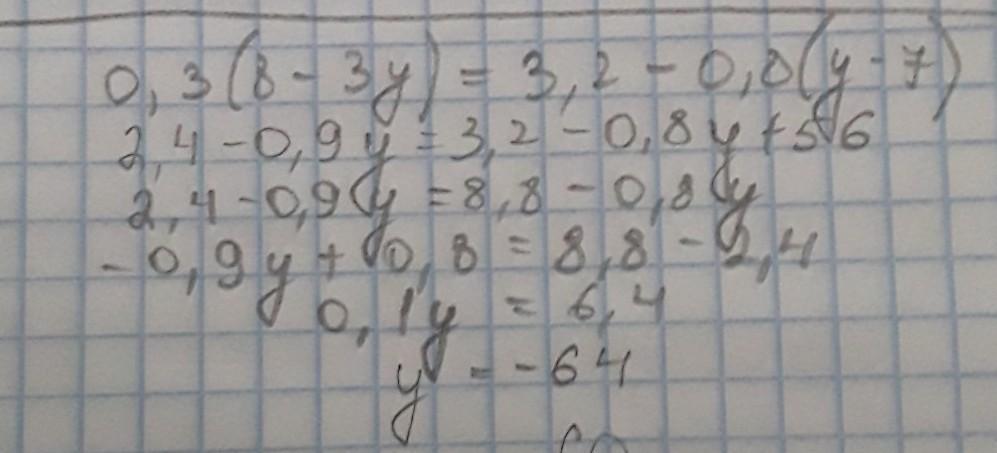 0,3(8-3y)=3,2-0,8(y-7)
2,4-0,9y=3,2-0,8y+5,6
2,4-0,9y=8,8-0,8y
-0,9y+0,8=8,8-2,4
0,1y=6,4
y=-64